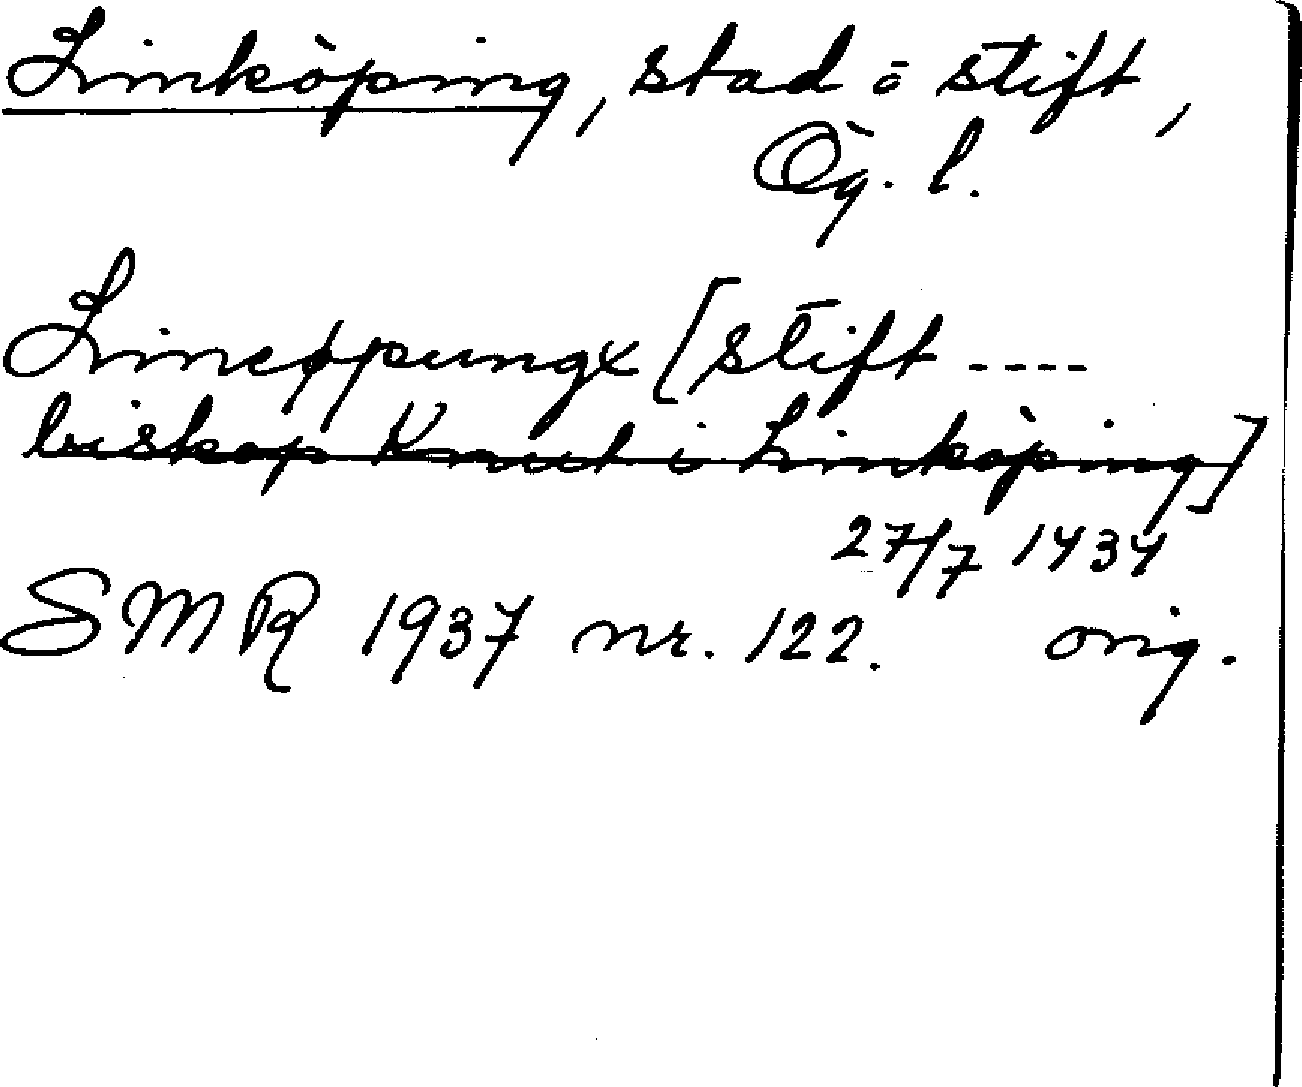 Linköping, stad o stift,
Ög. l.
Lincøpungx [stift ----
biskop Knut i Linköping]
27/7 1434
SMR 1937 nr. 122. orig.